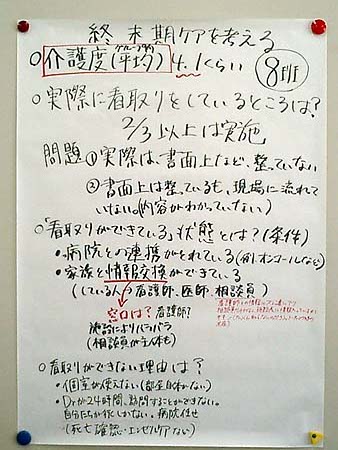 終末期ケアを考える
○介護度(平均) 4.1くらい
○実際に看取りをしているところは?
2/3以上は実施
問題①実際は、書面上など、整っていない
②書面上は整っているも、現場に流れて
いない。(内容がわかっていない)
○「看取りができている」状態とは?(条件)
・病院との連携がとれている(例)オンコールなど)
・家族と情報交換ができている
(している人)看護師、医師、相談員)
窓口は? 看護師?
施設によりバラバラ
(相談員が主体も)
○看取りができない理由は?
・個室が使えない(部屋自体がない)
・Drが24時間、訪問することができない。
自分たちが忙しかない。病院任せ
(死亡確認・エンゼルケアない)